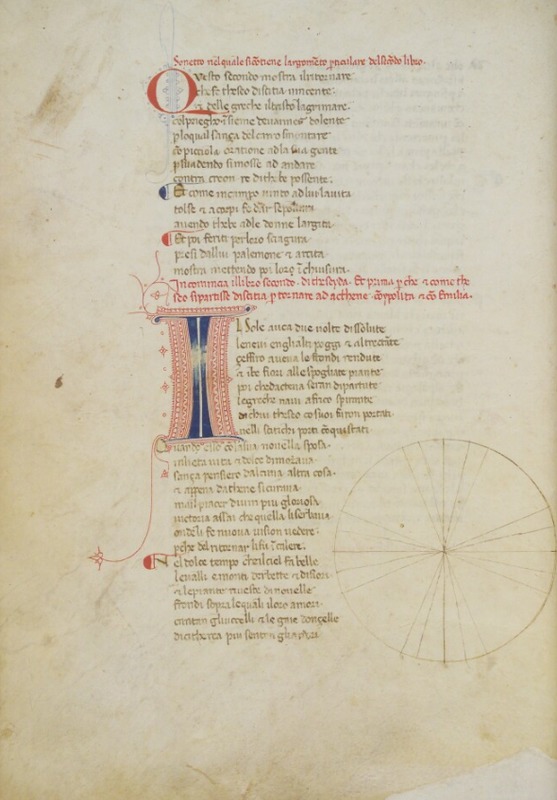 Sonetto nel quale si contiene largomẽto particulare del secõdo libro.
Questo secondo mostra il ritornare
che fe theseo discitia uincente
& delle greche il tristo lagrimare
col priegho ĩsieme de uarmes dolente
p loqual sança del carro smontare
cõ picciola oratione ad la sua gente
psuadendo si mosse ad andare
contra creon re di thebe possente:
Et come in campo uinto ad lui la uita
tolse & a corpi fe dar sepoltura
auendo thebe ad le donne largita
Et poi feriti per loro sciagura
presi dallui palemone & arcita
mostra mettendo por loro ĩ chiusura.
Incomincia il libro secondo. di theseyda. Et prima p che & come the
seo si partisse discitia p tornare ad acthene cõ ypolita & cõ Emilia.
IL Sole auea due uolte dissolute
le neui en gli alti poggi & altrectãte
çeffiro aueua le frondi rendute
& i be fiori alle spogliate piante
poi che dactena seran dipartute
le greche naui africo spirante
da chui theseo co suoi furon portati
nelli scitichi porti cõquistati
Quando ello cõ la sua nouella sposa
in lieta uita & dolce dimoraua
sança pensiero dalcuna altra cosa
& appena dathene si curaua
ma il piacer diuin piu gloriosa
uictoria assai che quella li serbaua
onde li fe nuoua uision uedere
pche del ritornar li fu ĩ calere:
Nel dolce tempo che il ciel fa belle
le ualli e monti derbette & di fiori
& le piante riueste di nouelle
frondi sopra le quali i loro amori
cantan gliuccelli & le gaie donçelle
di citherea piu sentõ gli ardori